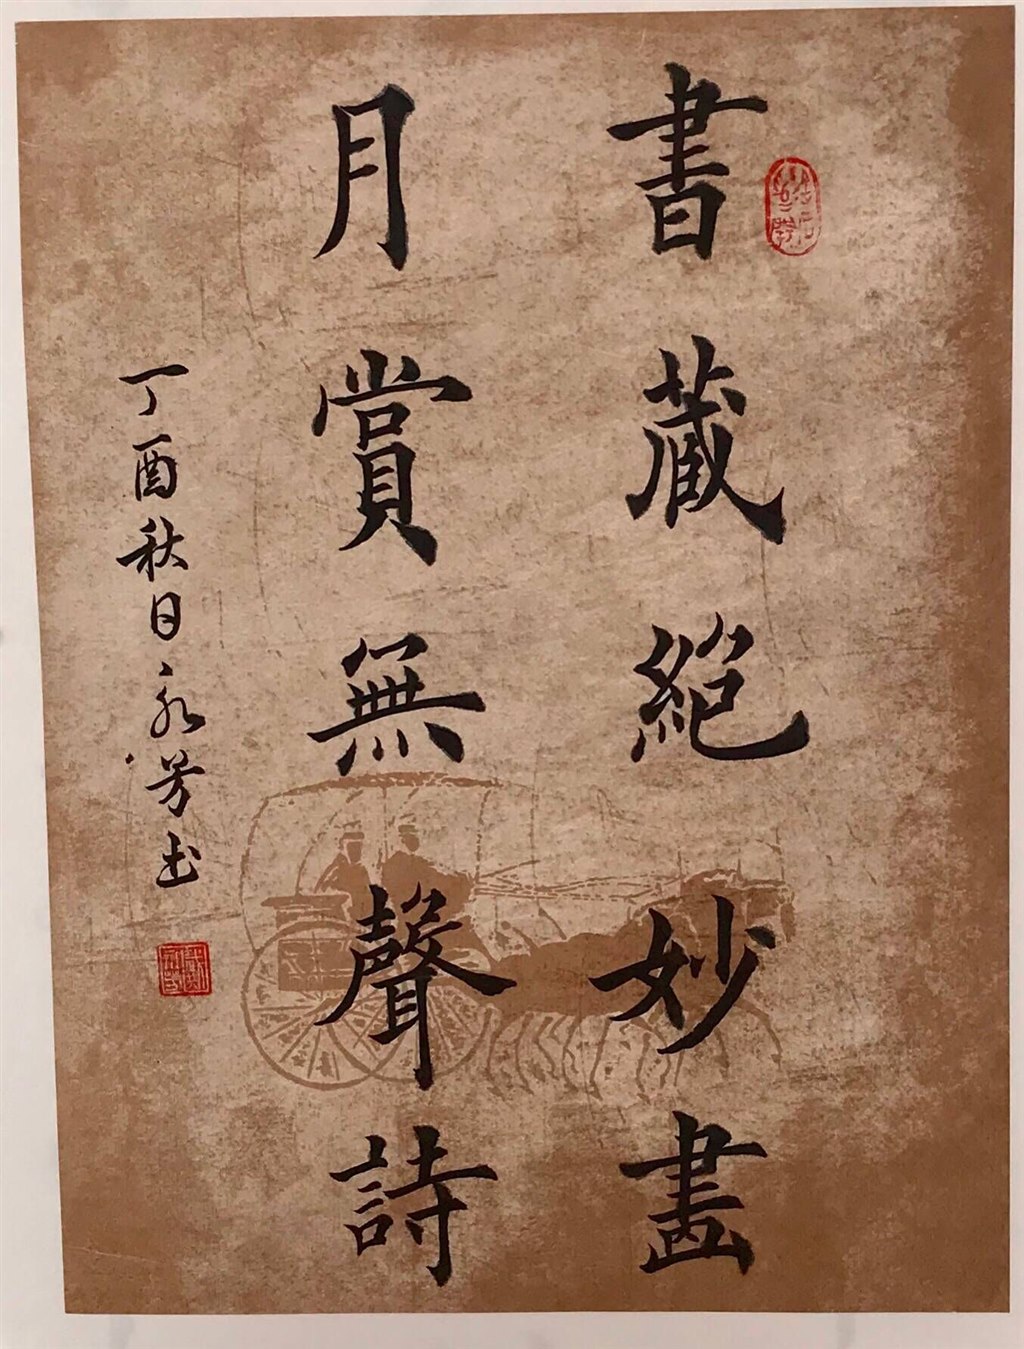 書藏絕妙畫
月賞無聲詩
丁酉秋日永芳书